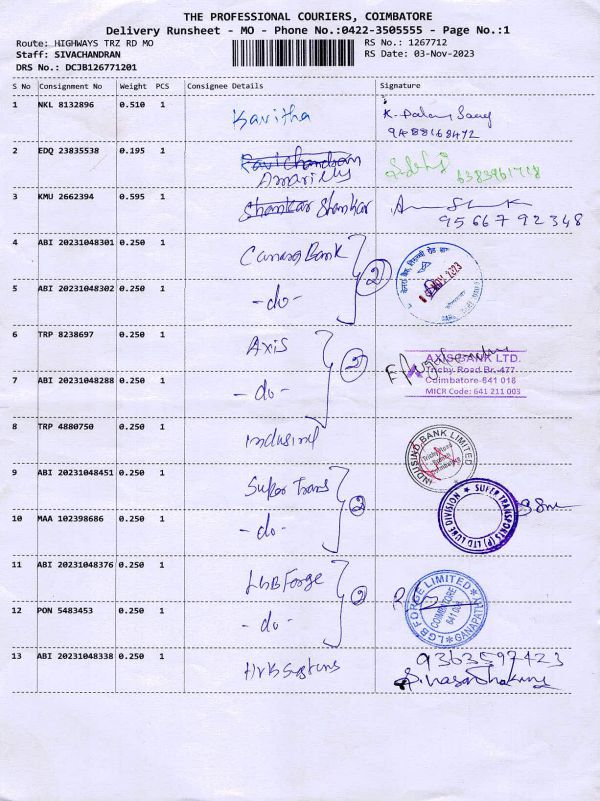 THE PROFESSIONAL COURIERS, COIMBATORE
Delivery Runsheet - MO - Phone No.:0422-3505555 - Page No.:1
Route: HIGHWAYS TRZ RD MO
RS No.: 1267712
Staff: SIVACHANDRAN
RS Date: 03-Nov-2023
DRS No.: DCJB126771201
S No Consignment No Weight PCS Consignee Details Signature
1 NKL 8132896 0.510 1 Kavitha
9488168472
2 EDQ 23835538 0.195 1 Ravichandran
Amarilys
6383961718
3 KMU 2662394 0.595 1 Shankar Shankar
9566792348
4 ABI 20231048301 0.250 1 Canara Bank
2
5 ABI 20231048302 0.250 1 -do-
6 TRP 8238697 0.250 1 Axis
2
AXIS BANK LTD.
Trichy Road Br.-477
Coimbatore-641 018
MICR Code: 641 211 003
7 ABI 20231048288 0.250 1 -do-
8 TRP 4880750 0.250 1 Indusind
INDUSIND BANK LIMITED
Trichy Road
9 ABI 20231048451 0.250 1 Super Trans
2
SUPER TRANSPORTS (P) LTD LUKE DIVISION
10 MAA 102398686 0.250 1 -do-
11 ABI 20231048376 0.250 1 LGB Forge
2
LGB FORGE LIMITED
COIMBATORE
641 006
GANAPATHY
12 PON 5483453 0.250 1 -do-
13 ABI 20231048338 0.250 1 HVB Systems
9363597423